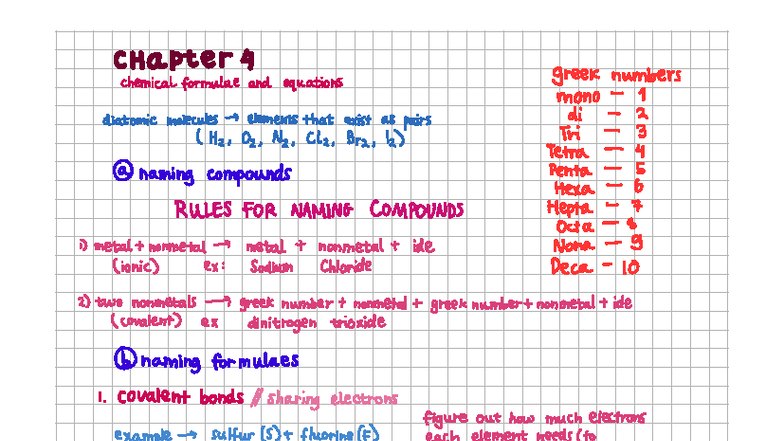 Chapter 4
chemical formulae and equations
diatomic molecules → elements that exist as pairs
(H₂, O₂, N₂, Cl₂, Br₂, I₂)
ⓐ naming compounds
RULES FOR NAMING COMPOUNDS
1) metal + nonmetal → metal + nonmetal + ide
(ionic) ex: Sodium Chloride
2) two nonmetals → greek number + nonmetal + greek number + nonmetal + ide
(covalent) ex dinitrogen trioxide
ⓑ naming formulaes
1. covalent bonds // sharing electrons
example → sulfur (S) + fluorine (F)
figure out how much electrons
each element needs (to
greek numbers
mono — 1
di — 2
Tri — 3
Tetra — 4
Penta — 5
Hexa — 6
Hepta — 7
Octa — 8
Nona — 9
Deca — 10